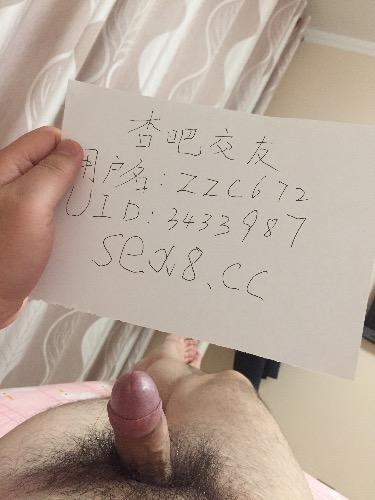 杏吧交友
用户名：ZZC672
UID：3433987
sex8.cc